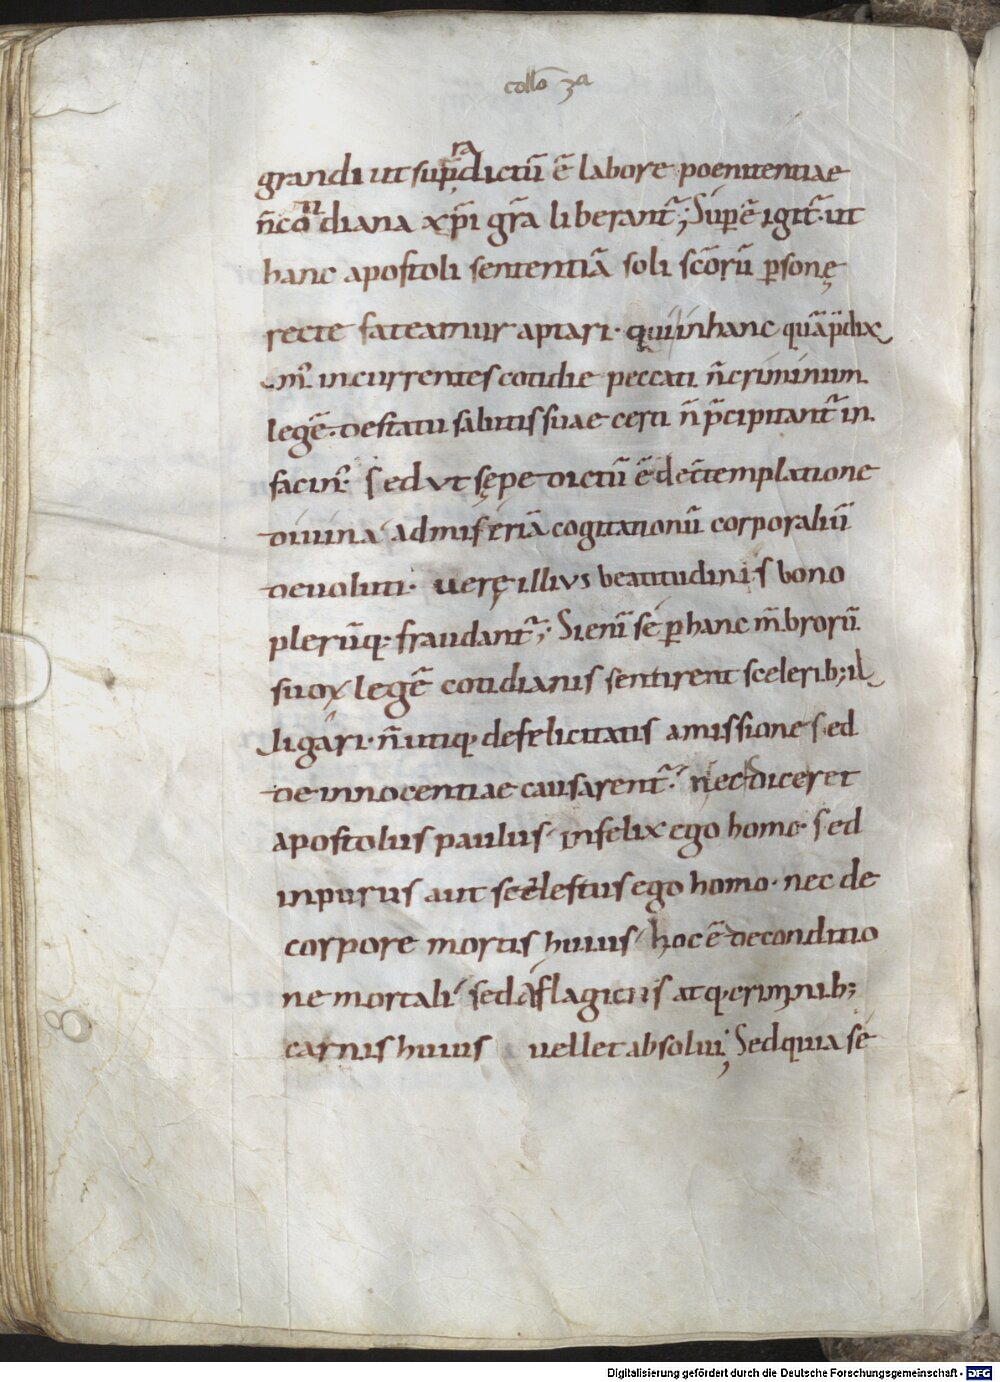 collo 3a
grandi ut sup̄radictū ē labore poenitentiae
n̄ cotidiana xp̄i gr̄a liberant᷑; Superē igit᷑ ut
hanc apostoli sententiā soli sc̄orū ꝑsonę
recte fateamur aptari· qui in hanc quā p̄dix
im᷒ incurrentes cotidie peccati n̄ criminum
legē· de statu salutis suae certi n̄ p̄cipitant᷑ in
facin᷒· sed ut sępe dictū ē de c̄templatione
divina ad miseriā cogitationū corporaliū
devoluti· verę illius beatitudinis bono
plerūq· fraudant᷑; Si enī se ꝑ hanc m̄brorū
suoꝝ legē cotidianis sentirent sceleribꝫ il
ligari· n̄ utiq· de felicitatis amissione sed
de innocentiae causarent᷑· nec diceret
apostolus paulus· infelix ego homo· sed
inpurus aut scelestus ego homo· nec de
corpore mortis huius hoc ē de conditio
ne mortali sed a flagiciis atq· criminibꝫ
carnis huius vellet absolui; Sed quia se
Digitalisierung gefördert durch die Deutsche Forschungsgemeinschaft - DFG